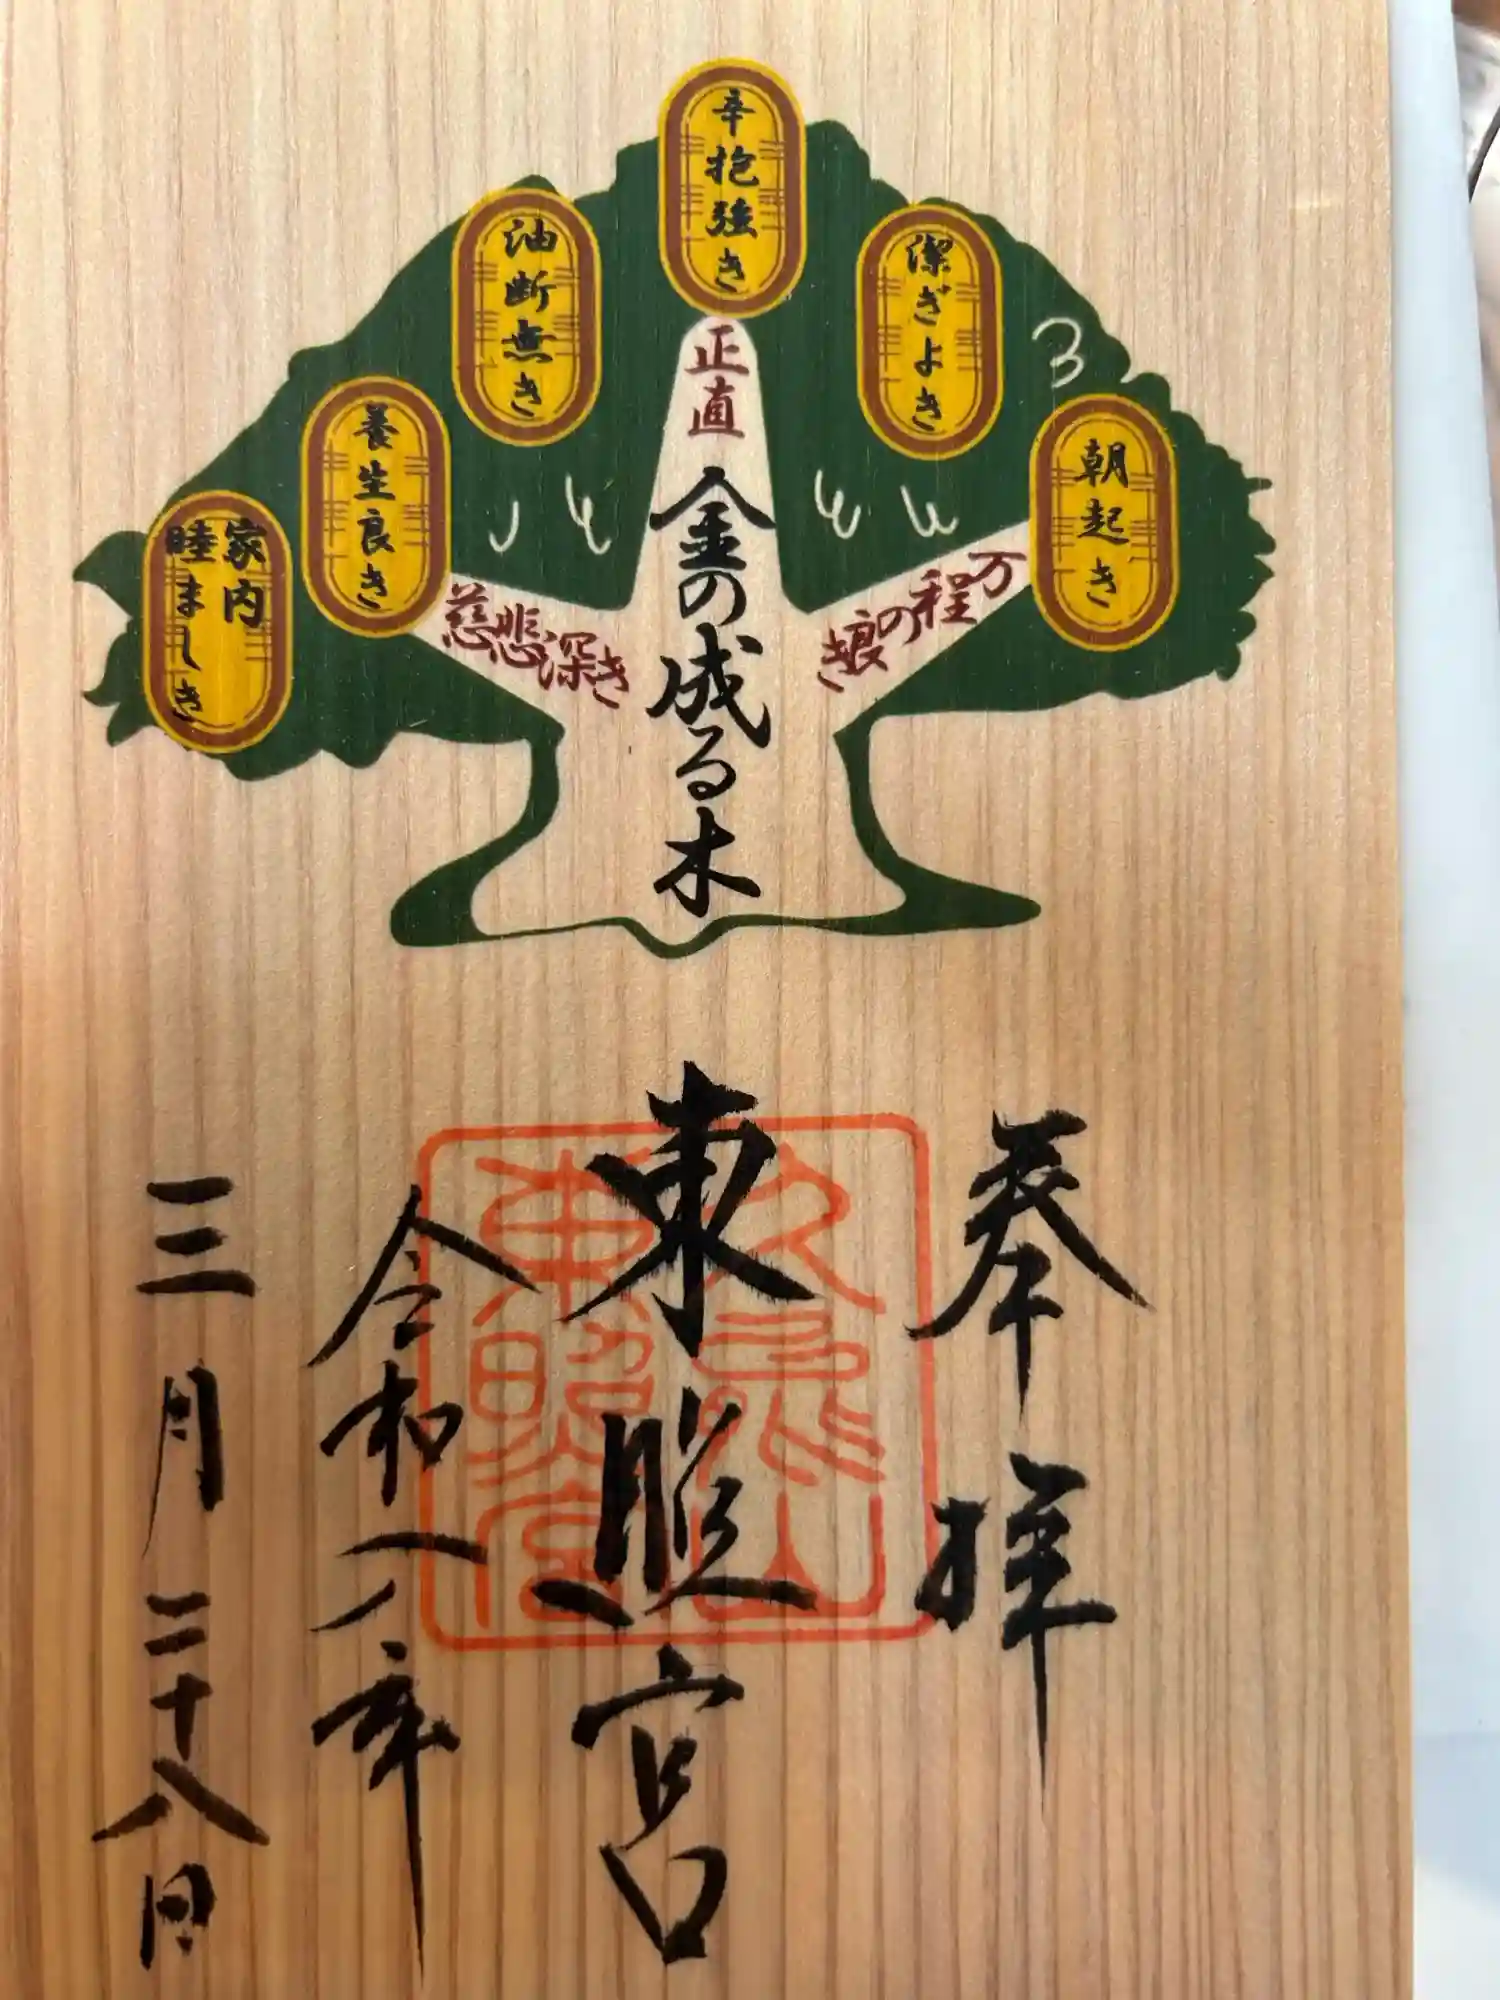 辛抱強き
潔ぎよき
朝起き
油断無き
養生良き
家内
睦ましき
正直
万程の良き
慈悲深き
金の成る木
奉拝
東照宮
久能山
東照宮
令和八年
三月二十八日